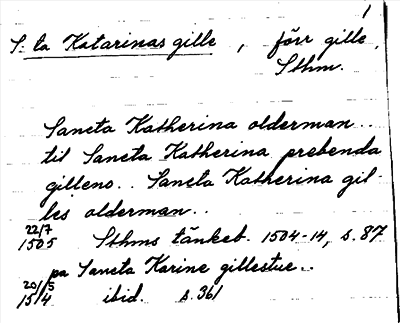 1
S:ta Katarinas gille , förr gille,
Sthm.
Sancta Katherina olderman..
til Sancta Katherina prebenda
gillens.. Sancta Katherina gil-
les olderman..
22/7
1505 Sthms tänkeb. 1504-14, s. 87
pa Sancta Karine gillestue..
20/5
1514 ibid. s. 361